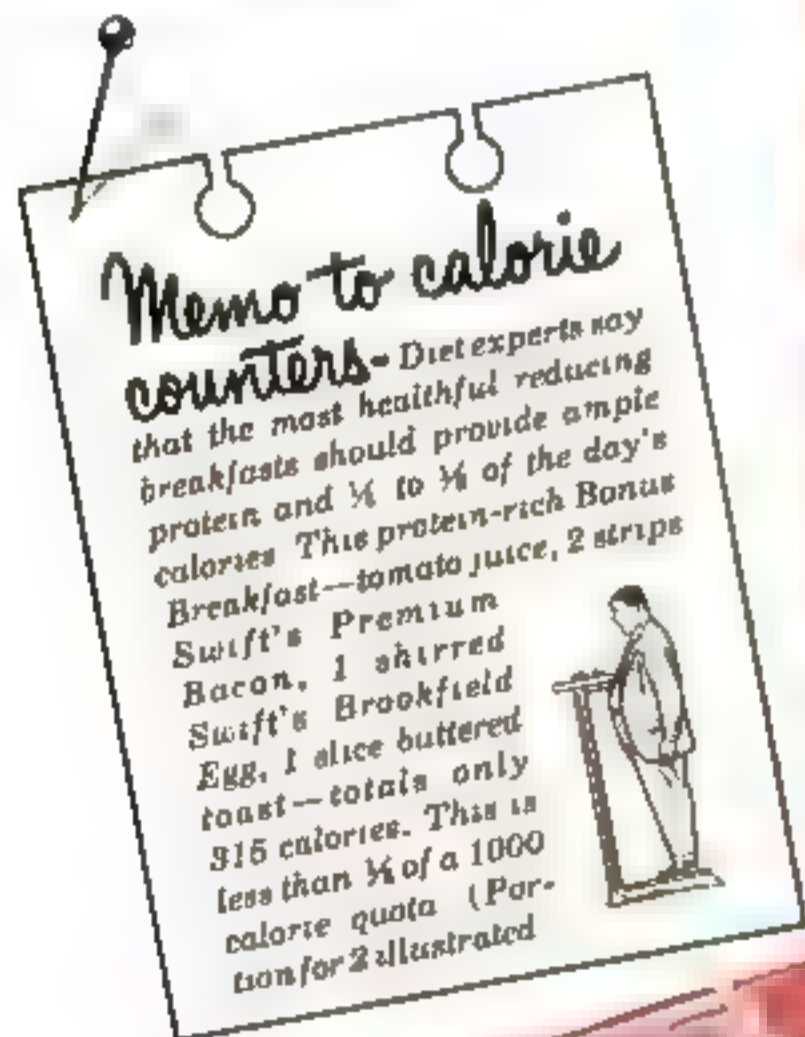 Memo to calorie
counters- Diet experts say
that the most healthful reducing
breakfasts should provide ample
protein and to of the day's
calories This protein-rich Bonus
Breakfast—tomato juice, 2 strips
Swift's Premium
Bacon, 1 shirred
Swift's Brookfield
Egg, 1 slice buttered
toast—totals only
315 calories. This is
less than of a 1000
calorie quota (Por-
tion for 2 illustrated